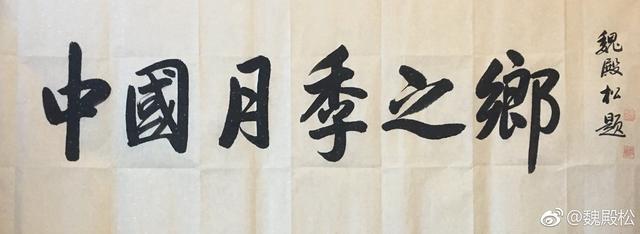 中國月季之鄉
魏殿松題
@魏殿松